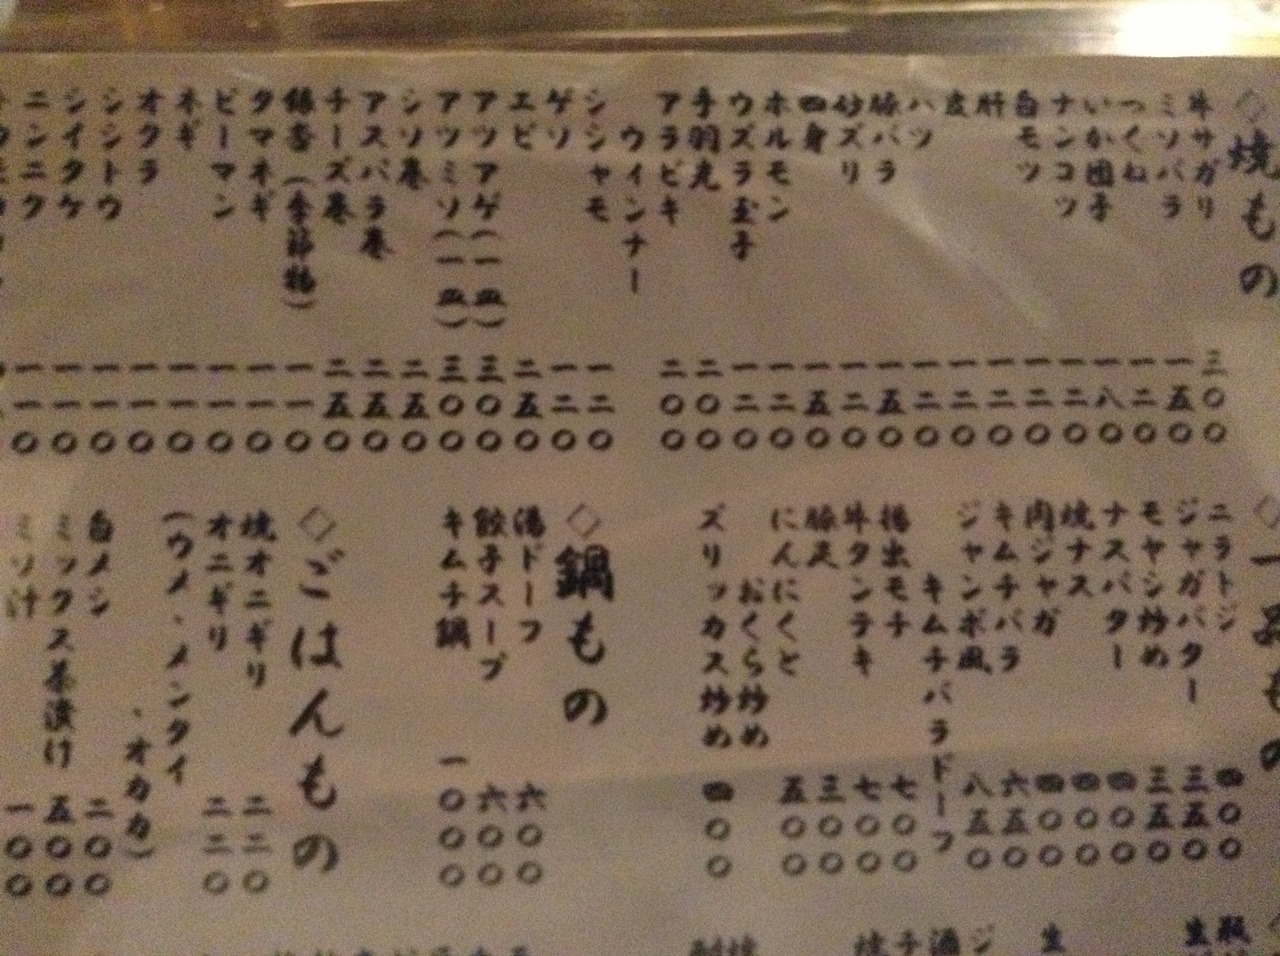 ◇焼もの
牛サガリ 三〇〇
ミソバラ 一五〇
つくね 一二〇
いか団子 一八〇
ナンコツ 一二〇
白モツ 一二〇
肝 一二〇
皮 一二〇
ハツ 一二〇
豚バラ 一五〇
砂ズリ 一二〇
四身 一五〇
ホルモン 一二〇
ウズラ玉子 一二〇
手羽先 二〇〇
アラビキ
ウィンナー 二〇〇
シシャモ 一二〇
ゲソ 一二〇
エビ 二五〇
アツアゲ(一皿) 三〇〇
アツミソ(一皿) 三〇〇
シソ巻 二五〇
アスパラ巻 二五〇
チーズ巻 二五〇
銀杏(季節物) 一一〇
タマネギ 一一〇
ピーマン 一一〇
ネギ 一一〇
オクラ 一一〇
シシトウ 一一〇
シイタケ 一一〇
ニンニク 一一〇
◇一品もの
ニラトジ 四〇〇
ジャガバター 三五〇
モヤシ炒め 三五〇
ナスバター 四〇〇
焼ナス 四〇〇
肉ジャガ 四〇〇
キムチバラ 六五〇
ジャンボ風
キムチバラドーフ 八五〇
揚出モチ 七〇〇
牛タンテキ 七〇〇
豚足 三〇〇
にんにくと
おくら炒め 五〇〇
ズリッカス炒め 四〇〇
◇鍋もの
湯ドーフ 六〇〇
餃子スープ 六〇〇
キムチ鍋 一〇〇〇
◇ごはんもの
焼オニギリ 二二〇
オニギリ 二二〇
(ウメ、メンタイ
、オカカ)
白メシ 二〇〇
ミックス茶漬け 五〇〇
ミソ汁 一〇〇